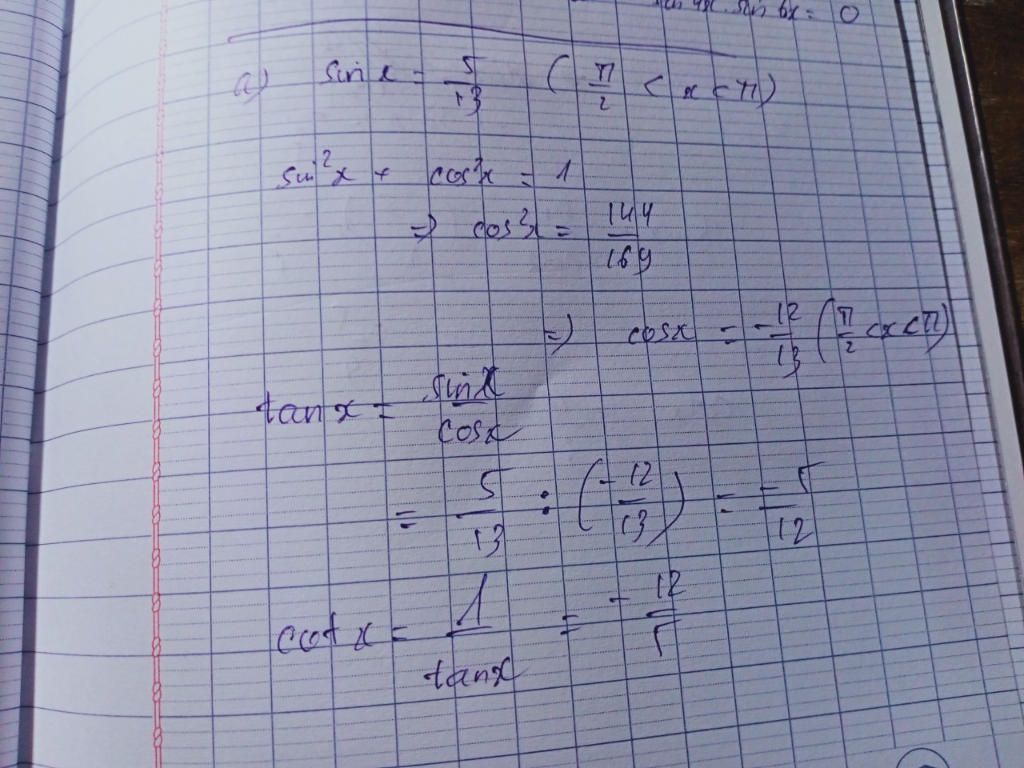 sin 6x = 0
a) sin x = 5/13 ( π/2 < x < π )
sin²x + cos²x = 1
=> cos²x = 144/169
=> cosx = -12/13 ( π/2 < x < π )
tan x = sinx/cosx
= 5/13 : ( -12/13 ) = -5/12
cot x = 1/tanx = -12/5